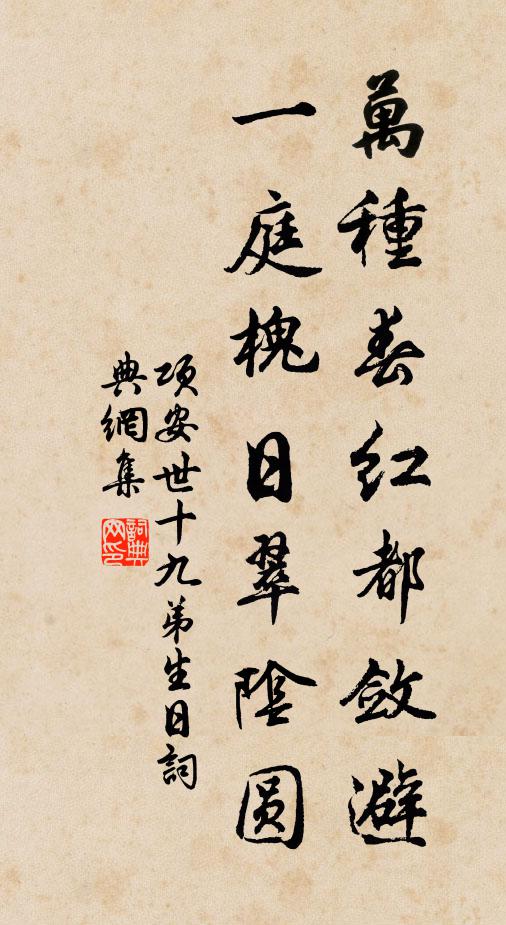 萬種春紅都斂避
一庭槐日翠陰圆
項安世十九弟生日詞
典網集
詞典
网印